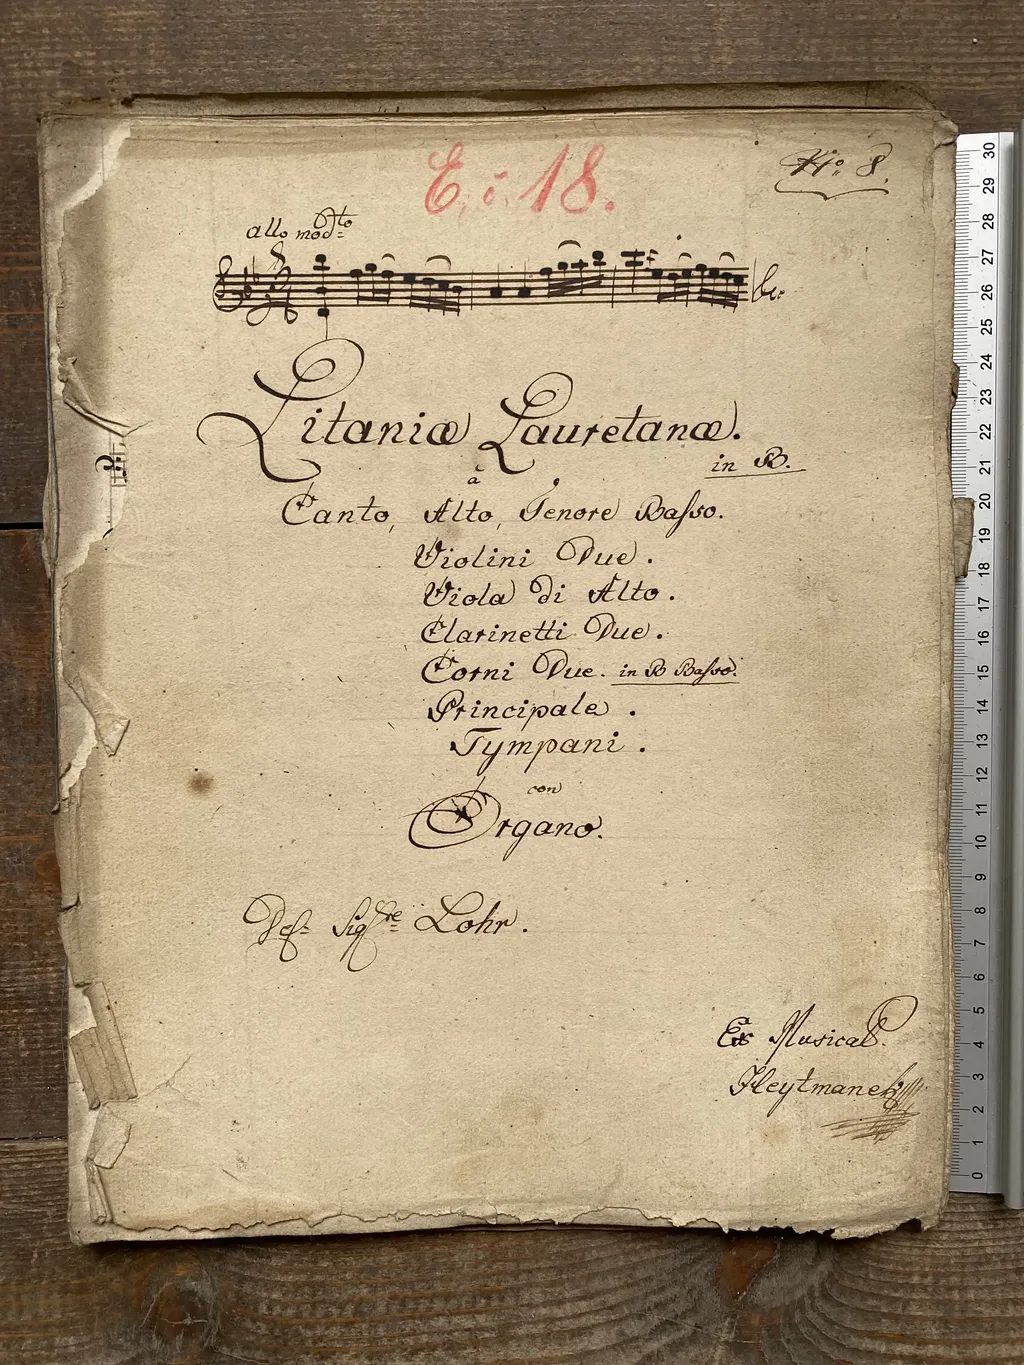 E. c. 18.
No: 8.
allo modto
Litaniæ Lauretanæ.
in B.
à
Canto, Alto, Tenore Basso.
Violini Due.
Viola di Alto.
Clarinetti Due.
Corni Due. in B Basso.
Principale.
Tympani.
con
Organo.
Del Sigre Lohr.
Ex Musical.
Heytmanek
30
29
28
27
26
25
24
23
22
21
20
19
18
17
16
15
14
13
12
11
10
9
8
7
6
5
4
3
2
1
0